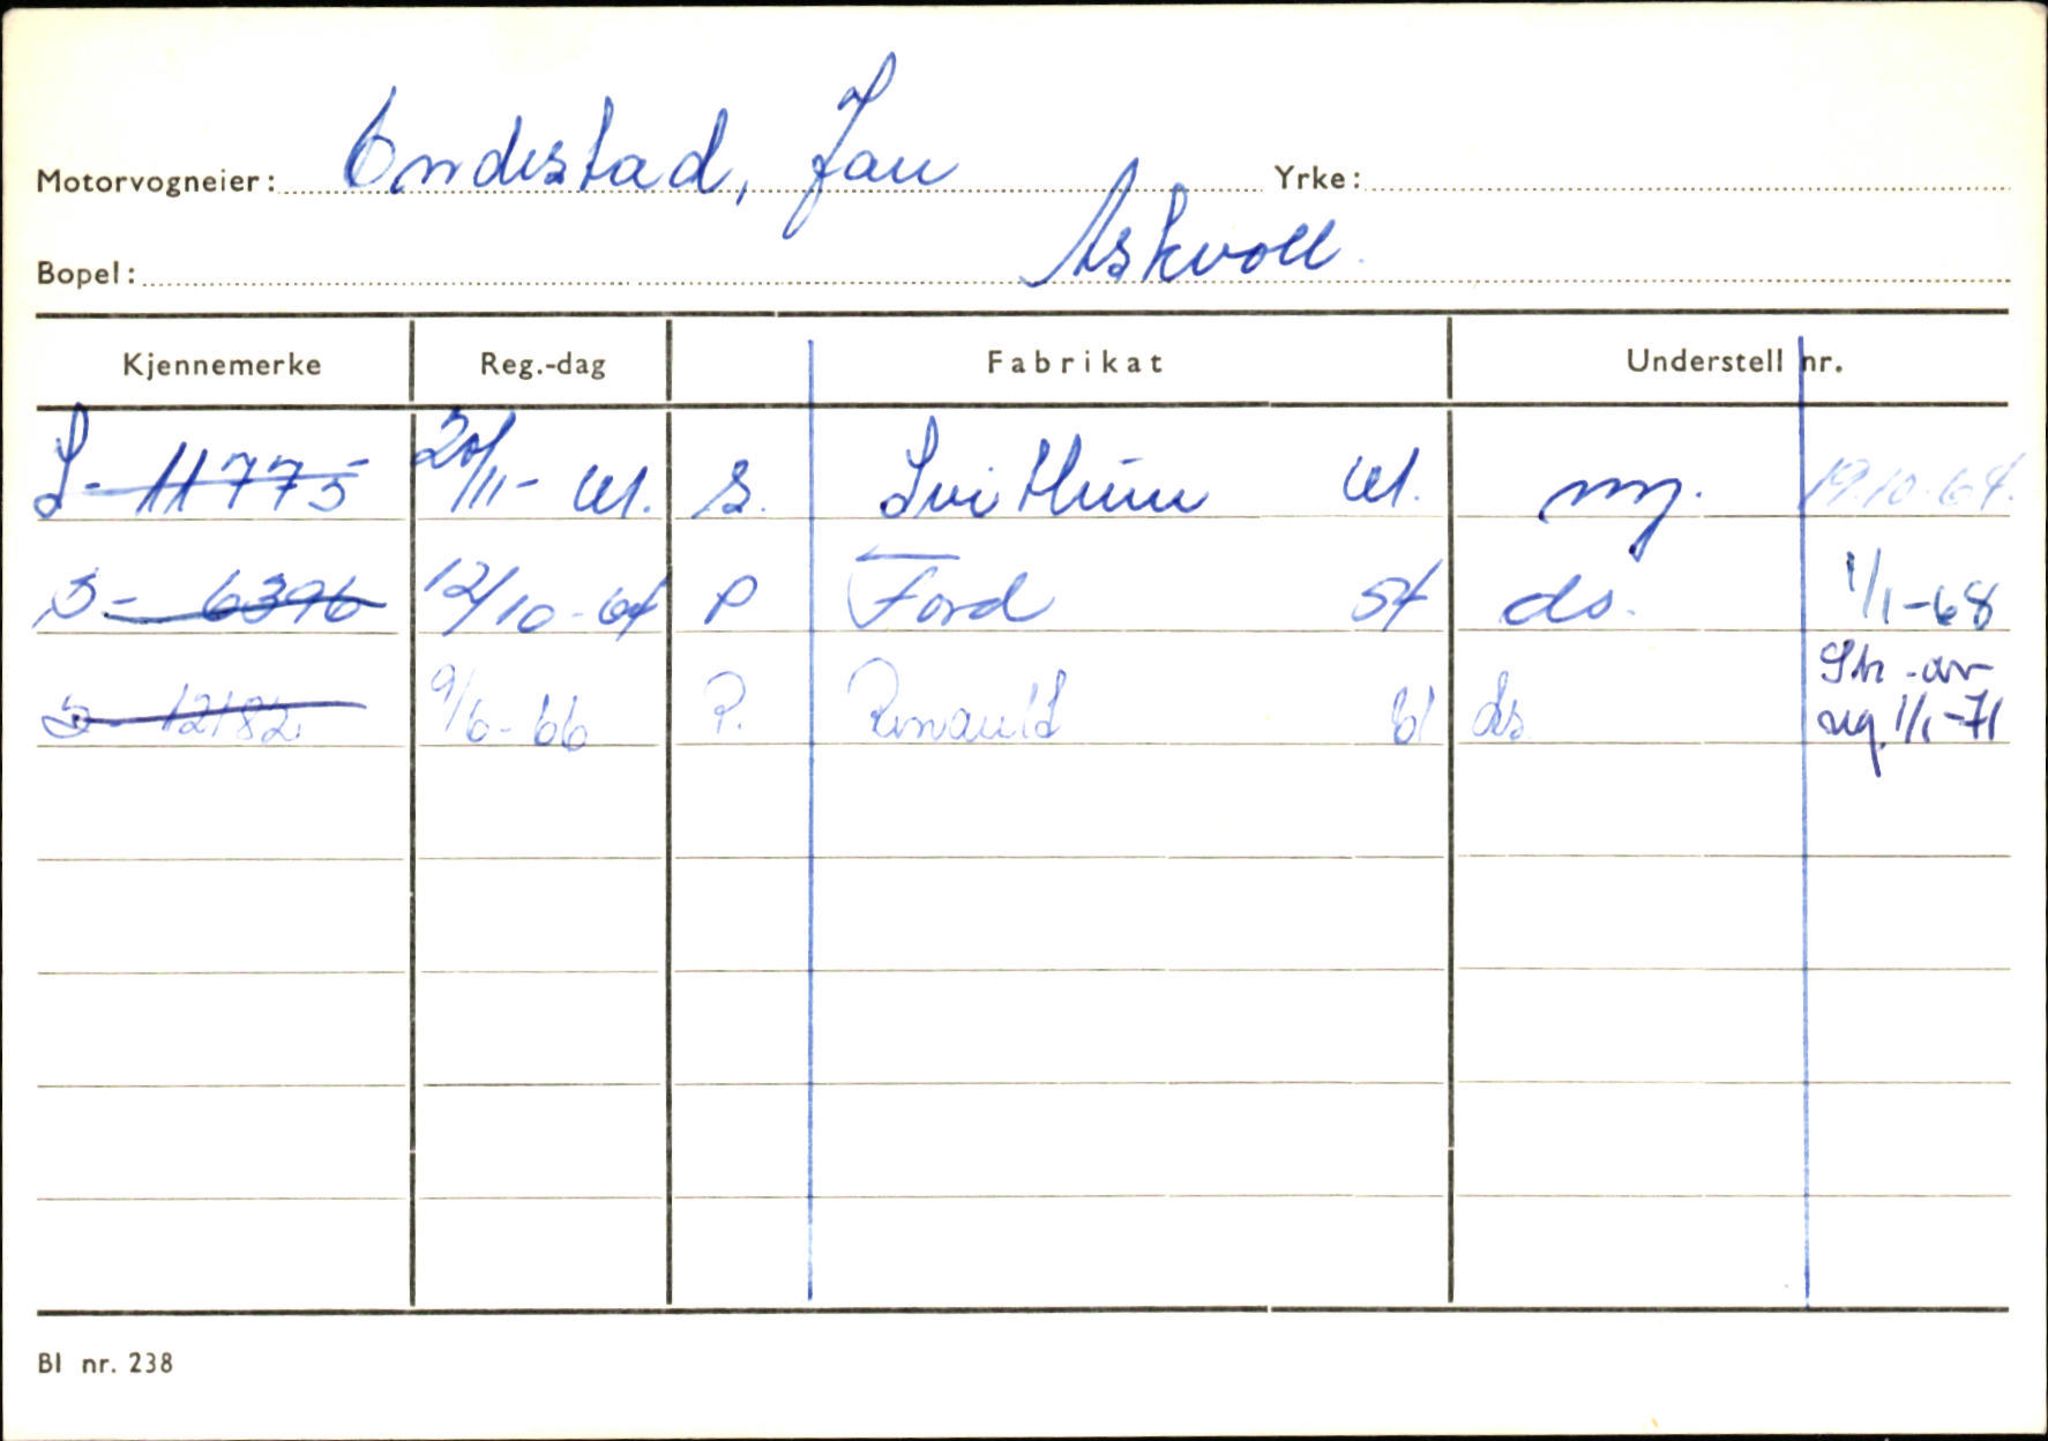 Motorvogneier: Ondestad, Jan Yrke:
Bopel: Askvoll.
Kjennemerke Reg.-dag Fabrikat Understell nr.
S- 11775 20/11- 61. S. Svithun 61. ny. 19.10.64.
S- 6396 12/10-64 P Ford 54 do. 1/1-68
S- 12182 9/6-66 P. Renauld 61 ds Str.-av-
reg. 1/1-71
Bl nr. 238